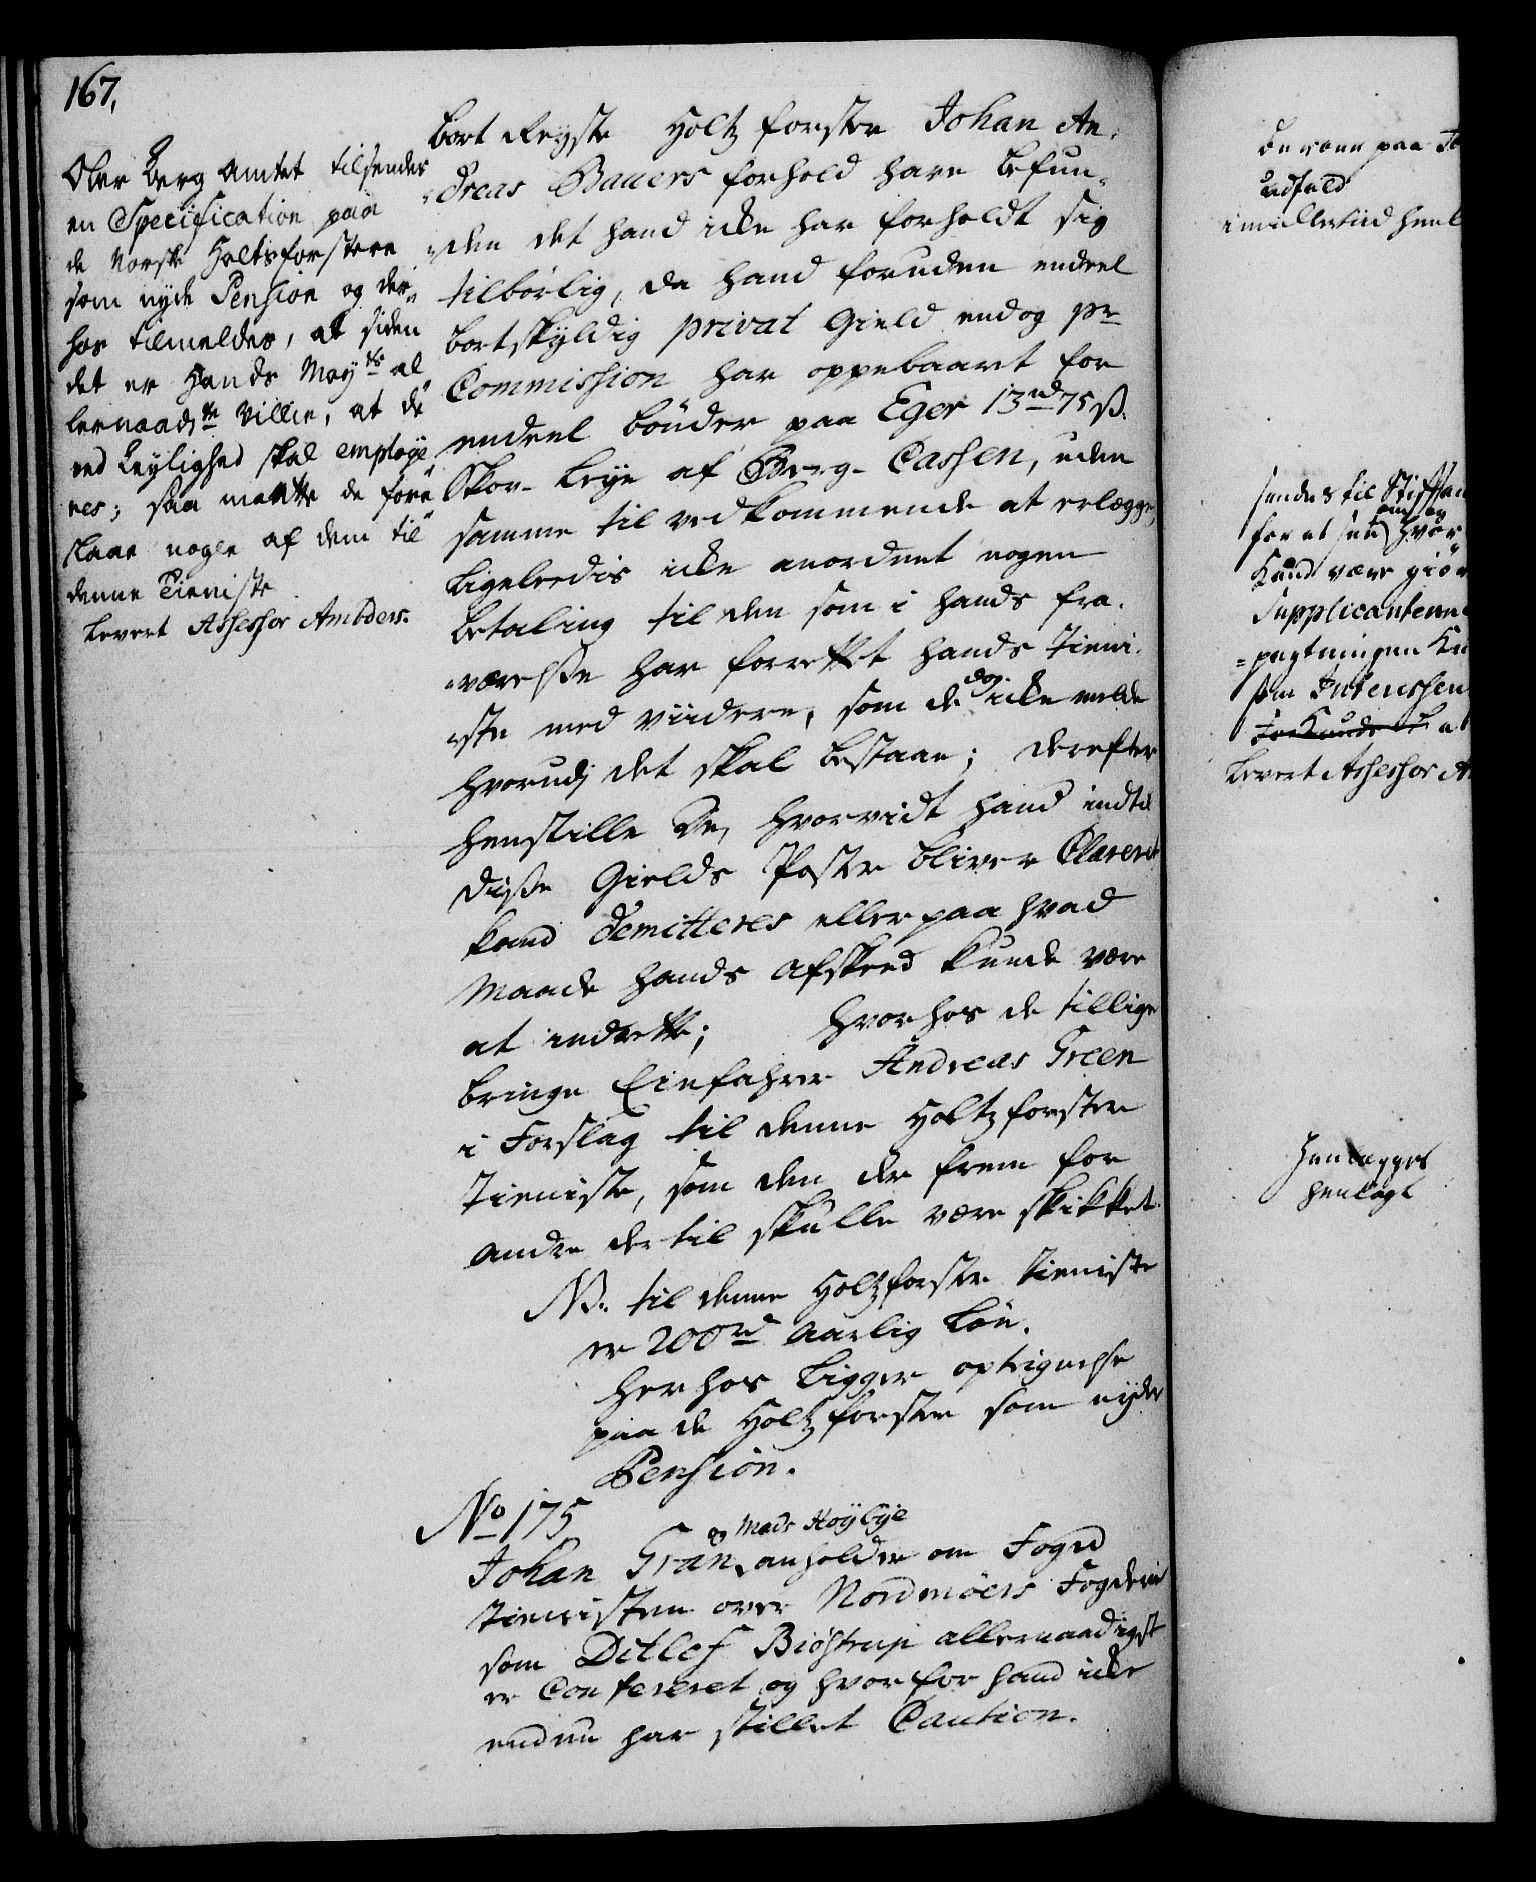 167.
Ober Berg Amtet tilsendes
en Specification paa
de Norske Holtsforstere
som nyde Pension og der-
hos tilmeldes, at siden
det er Hands Mayts al
lernaadste Villie, at de
ved Leylighed skal employe
res; saa maatte de fore
slaae nogle af dem til
denne Tieniste
Levert Assessor Ambders.
bort Reyste Holtz forster Johan An-
dreas Bauers forhold have befun-
den det hand icke har forholdt sig
tilbørlig, da hand foruden endeel
bortskyldig privat Gield endog pr
Commission har oppebaaret for
endeel bønder paa Eger 13rd 75 ß.
Skov-Leye af Berg-Cassen, uden
samme til vedkommende at erlægge,
ligeledis icke anordnet nogen
betaling til den som i hands fra-
værelse har forrettet hands Tieni-
ste med viidere, som de dog icke melde
hvorudj det skal bestaae; derefter
henstille de, hvorvidt hand indtil
disse Gields Poster bliver Clareret
kand demitteres eller paa hvad
Maade hands afskeed kunde være
at indrette; hvorhos de tillige
bringe Einfahrer Andreas Green
i Forslag til denne Holtzforster
Tieniste, som den der frem for
andre der til skulle være skikket.
NB. til denne Holtzforster Tieniste
er 200rd aarlig Løn.
Her hos ligger optegnelse
paa de Holtzforster som nyder
Pension.
No 175
Johan Gran og Mads Høybye anholder om Foged
Tienisten over Nordmøers Fogderie
som Ditlef Biøstrup allernaadigst
er Confereret og hvorfor hand icke
endnu har stillet Caution.
udfald
imidlertiid henl
sendes til Stiftam
for at see om og hvor
Kand være giör
Supplicanterne
som Interessen
Levert Assessor A
Henlægges
henlagt